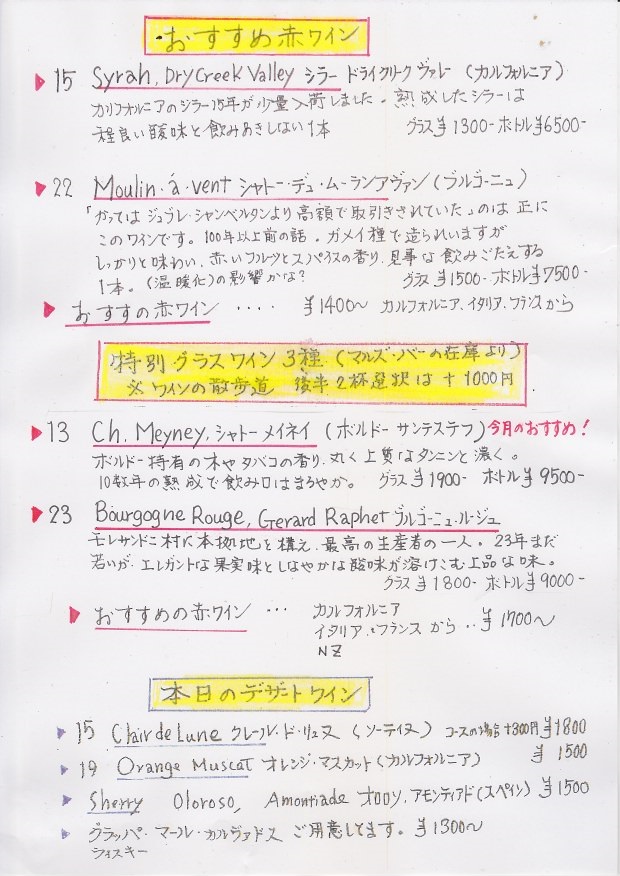 ・おすすめ赤ワイン
▶ 15 Syrah, Dry Creek Valley シラー ドライクリーク ヴァレー (カルフォルニア)
カリフォルニアのシラー15年が少量入荷しました。熟成したシラーは
程良い酸味と飲みあきしない1本 グラス¥1300- ホトル¥6500-
▶ 22 Moulin・á・vent シャトー・デュ・ムーランアヴァン (ブルゴーニュ)
「かつては ジュブレ・シャンベルタンより高額で取引きされていた」のは正に
このワインです。100年以上前の話。ガメイ種で造られいますが
しっかりと味わい、赤いフルーツとスパイスの香り、見事な飲みごたえする
1本。(温暖化)の影響かな? グラス¥1500- ホトル¥7500-
▶ おすすの赤ワイン ････ ¥1400〜 カルフォルニア、イタリア、フランスから
特別グラスワイン3種 (マルズ・バーの在庫より)
※ ワインの散歩道 後半2杯選択は + 1000円
▶ 13 Ch. Meyney, シャトーメイネイ (ボルドー サンテステフ) 今月のおすすめ!
ボルドー特有の木やタバコの香り、丸く上質なタンニンと濃く。
10数年の熟成で飲み口はまろやか。 グラス¥1900- ホトル¥9500-
▶ 23 Bourgogne Rouge, Gerard Raphet ブルゴーニュ・ルージュ
モレサンドニ村に本拠地を構え、最高の生産者の一人。23年まだ
若いが、エレガントな果実味としなやかな酸味が溶けこむ上品な味。
グラス¥1800- ホトル¥9000-
▶ おすすめの赤ワイン ･･･ カルフォルニア
イタリア、フランス から ･･ ¥1700〜
NZ
本日のデザートワイン
▶ 15 Clair de Lune クレール・ド・リュヌ (ソーテイヌ) コースの場合+300円 ¥1800
▶ 19 Orange Muscat オレンジ・マスカット (カルフォルニア) ¥1500
▶ Sherry Oloroso, Amontiade オロロソ、アモンティアド (スペイン) ¥1500
▶ グラッパ・マール・カルヴァドス ご用意してます。¥1300〜
ウィスキー